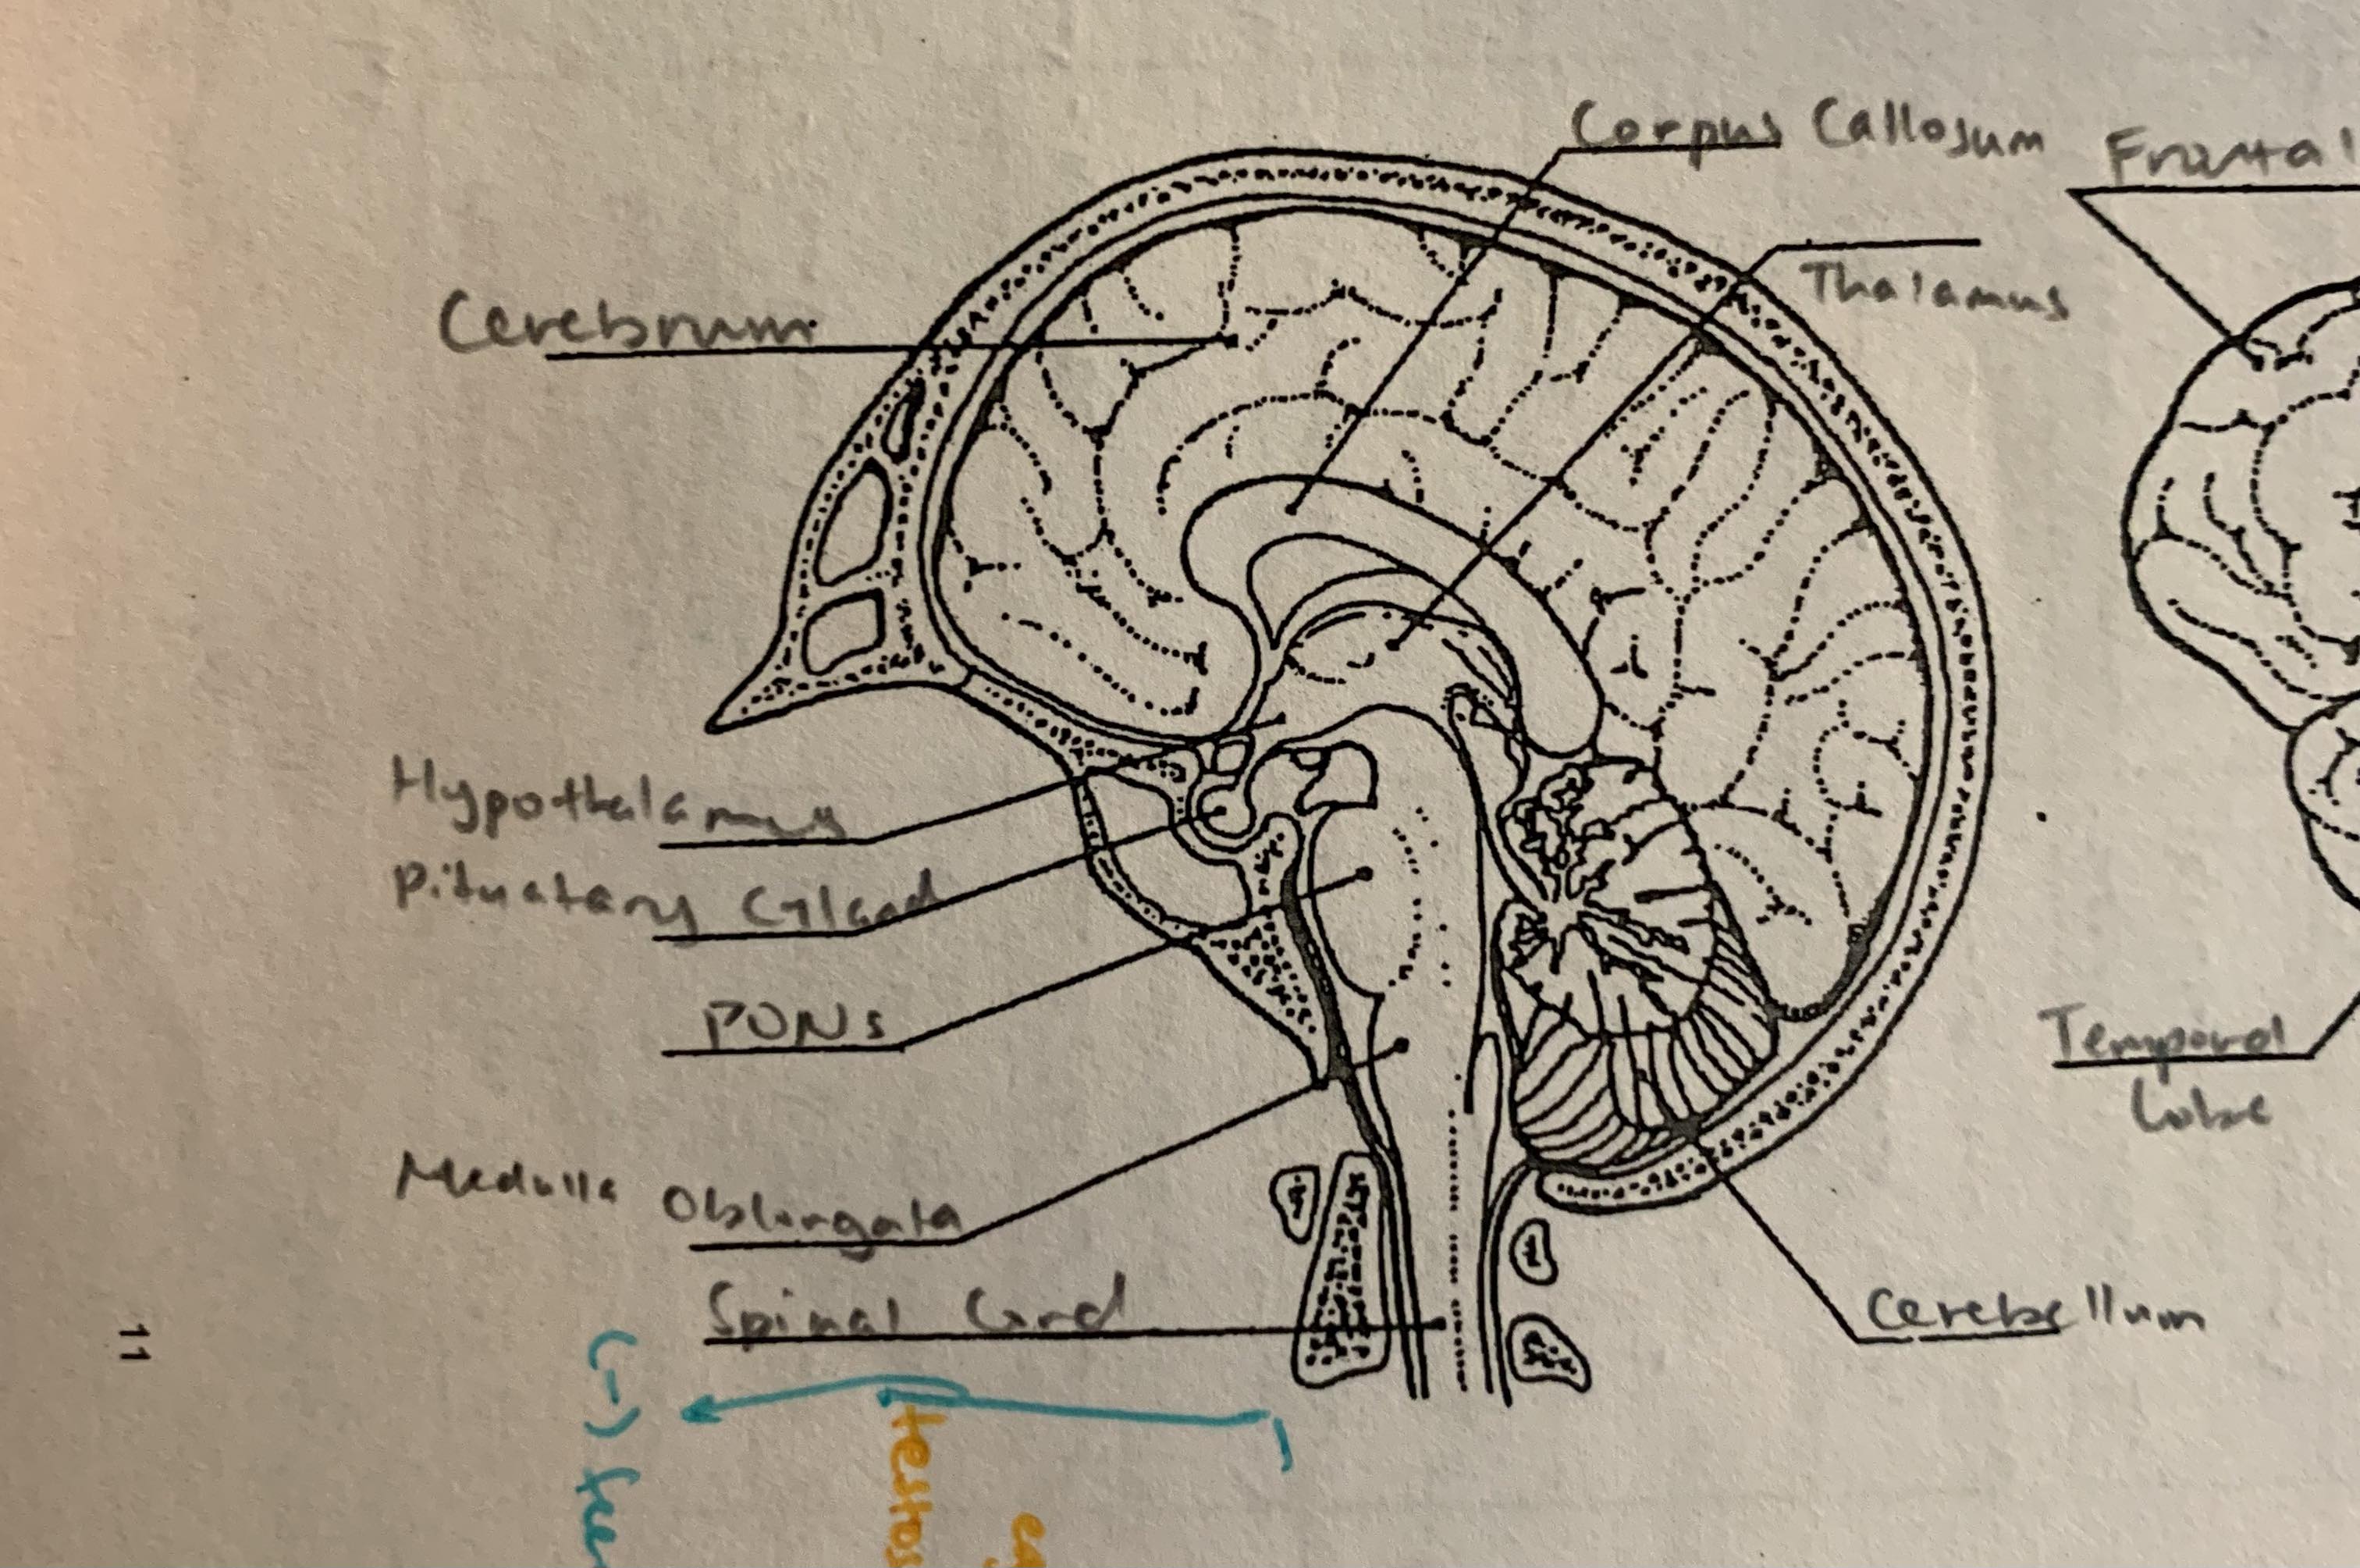 Corpus Callosum
Frontal
Thalamus
Cerebrum
Hypothalamus
Pituatary Gland
PONs
Temporal
Lobe
Medulla Oblongata
Spinal Cord
Cerebellum
11
(-) fee
testos
eg